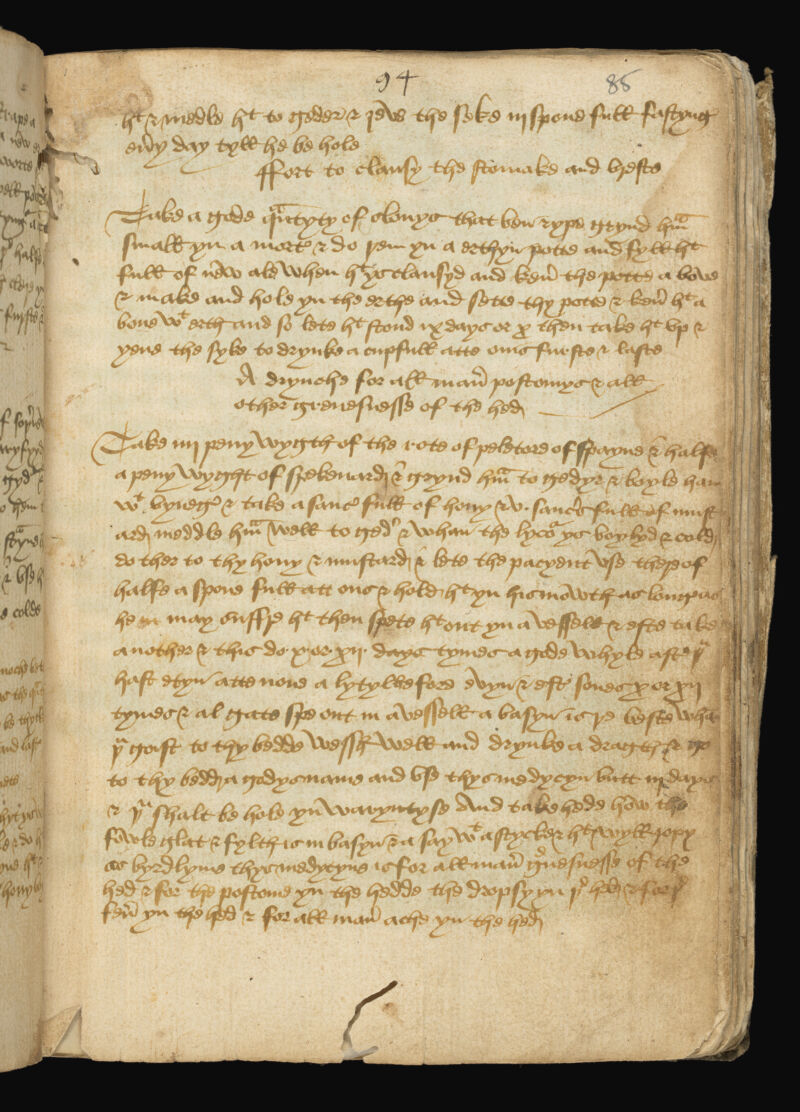 94 85
hit & medle hit to geder & yeve the seke iij spone full fastyng
every day tyll he be hole
ffort to clansy the stomake and breste
Take a gode quantyty of slonys that ben rype grynd hem
small yn a morter & do yem yn a erthyn potte and fyll hit
full of new ale when hit ys clansyd and kever the potte a bove
& make and hole yn the erthe and sette thy potte & kever hit a
bove wt erth and so lete hit stond ix days or x then take hit vp &
yeve the syke to drynke a cupfull atte onis furste & laste
A drynche for all maner postomys & all
other grevesnesse of the hed
Take iiij peny wygth of the rote of peletore of spayne & halfe
a peny wyght of spekenard & grynd hem to gedyr & boyle ham
wt vyneger & take a sauc full of hony & v. saucers full of must
ard meddle hem well to geder & whan the lycor ys boylyd & cold
do ther to thy hony & mustard & lete the pacyent vse therof
halfe a spone full att ons & hold hit yn his mowth as long as
he may suffre hit then spete hit out yn a vessell & efte take
a nother & this do x or xij days tymes a gode whyle after yu
hast etyn atte none a lytyll before evyn & eft sones x or xij
tymes & al gate spe out in a vessell a basyn is ye beste whan
yu goist to thy bedde wessh well and drynke a dragth & go
to thy bedd a godys name and vse thys medycyn butt iij days
& yu shalt be hole yn waryntyse And take hede how the
fowle glat & fylth is in basyn & a say wt a stycke & hit wyll ropy
as byrdlyme thys medycyne is for all maner grevesnesse of the
hed & for the postome yn the hedde the dropsy yn ye hed & for ye
fever yn the hed & for all maner ache yn the hed